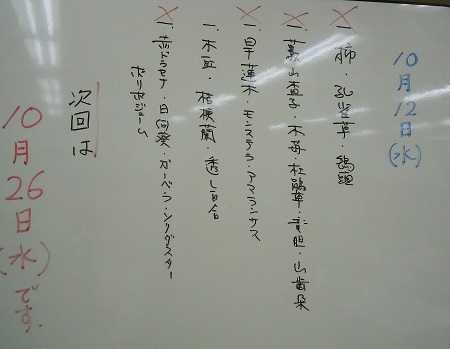 10月12日(水)
一、柿・孔雀草・鶏頭
一、莫山盃子・木苺・杜鵑草・竜胆・山歯朶
一、旱蓮木・モンステラ・アマランサス
一、木瓜・桔梗蘭・透し百合
一、赤ドラセナ・日向葵・ガーベラ・ソリダスター
ホリホジューム
次回は
10月26日(水)です.